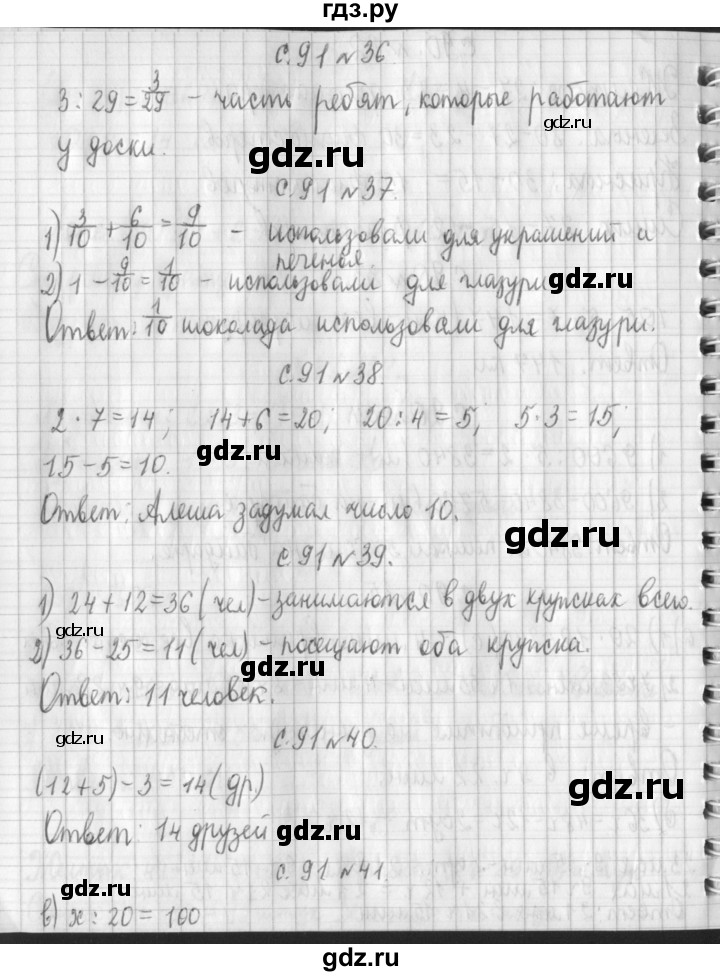 гдз.ру
с.91 №36.
3:29=3/29 - часть ребят, которые работают
gdz.ru
у доски.
gdz.ru
с.91 №37.
1) 3/10 + 6/10 = 9/10 - использовали для украшений и
печенья.
2) 1 - 9/10 = 1/10 - использовали для глазури
gdz.ru
Ответ: 1/10 шоколада использовали для глазури.
с.91 №38.
2·7=14; 14+6=20; 20:4=5; 5·3=15;
15-5=10.
gdz.ru
Ответ: Алеша задумал число 10.
gdz.ru
с.91 №39.
1) 24+12=36(чел)-занимаются в двух кружках всего.
gdz.ru
2) 36-25=11(чел)-посещают оба кружка.
gdz.ru
Ответ: 11 человек.
gdz.ru
с.91 №40.
(12+5)-3=14(др)
gdz.ru
Ответ: 14 друзей
gdz.ru
с.91 №41.
gdz.ru
в) x:20=100
gdz.ru